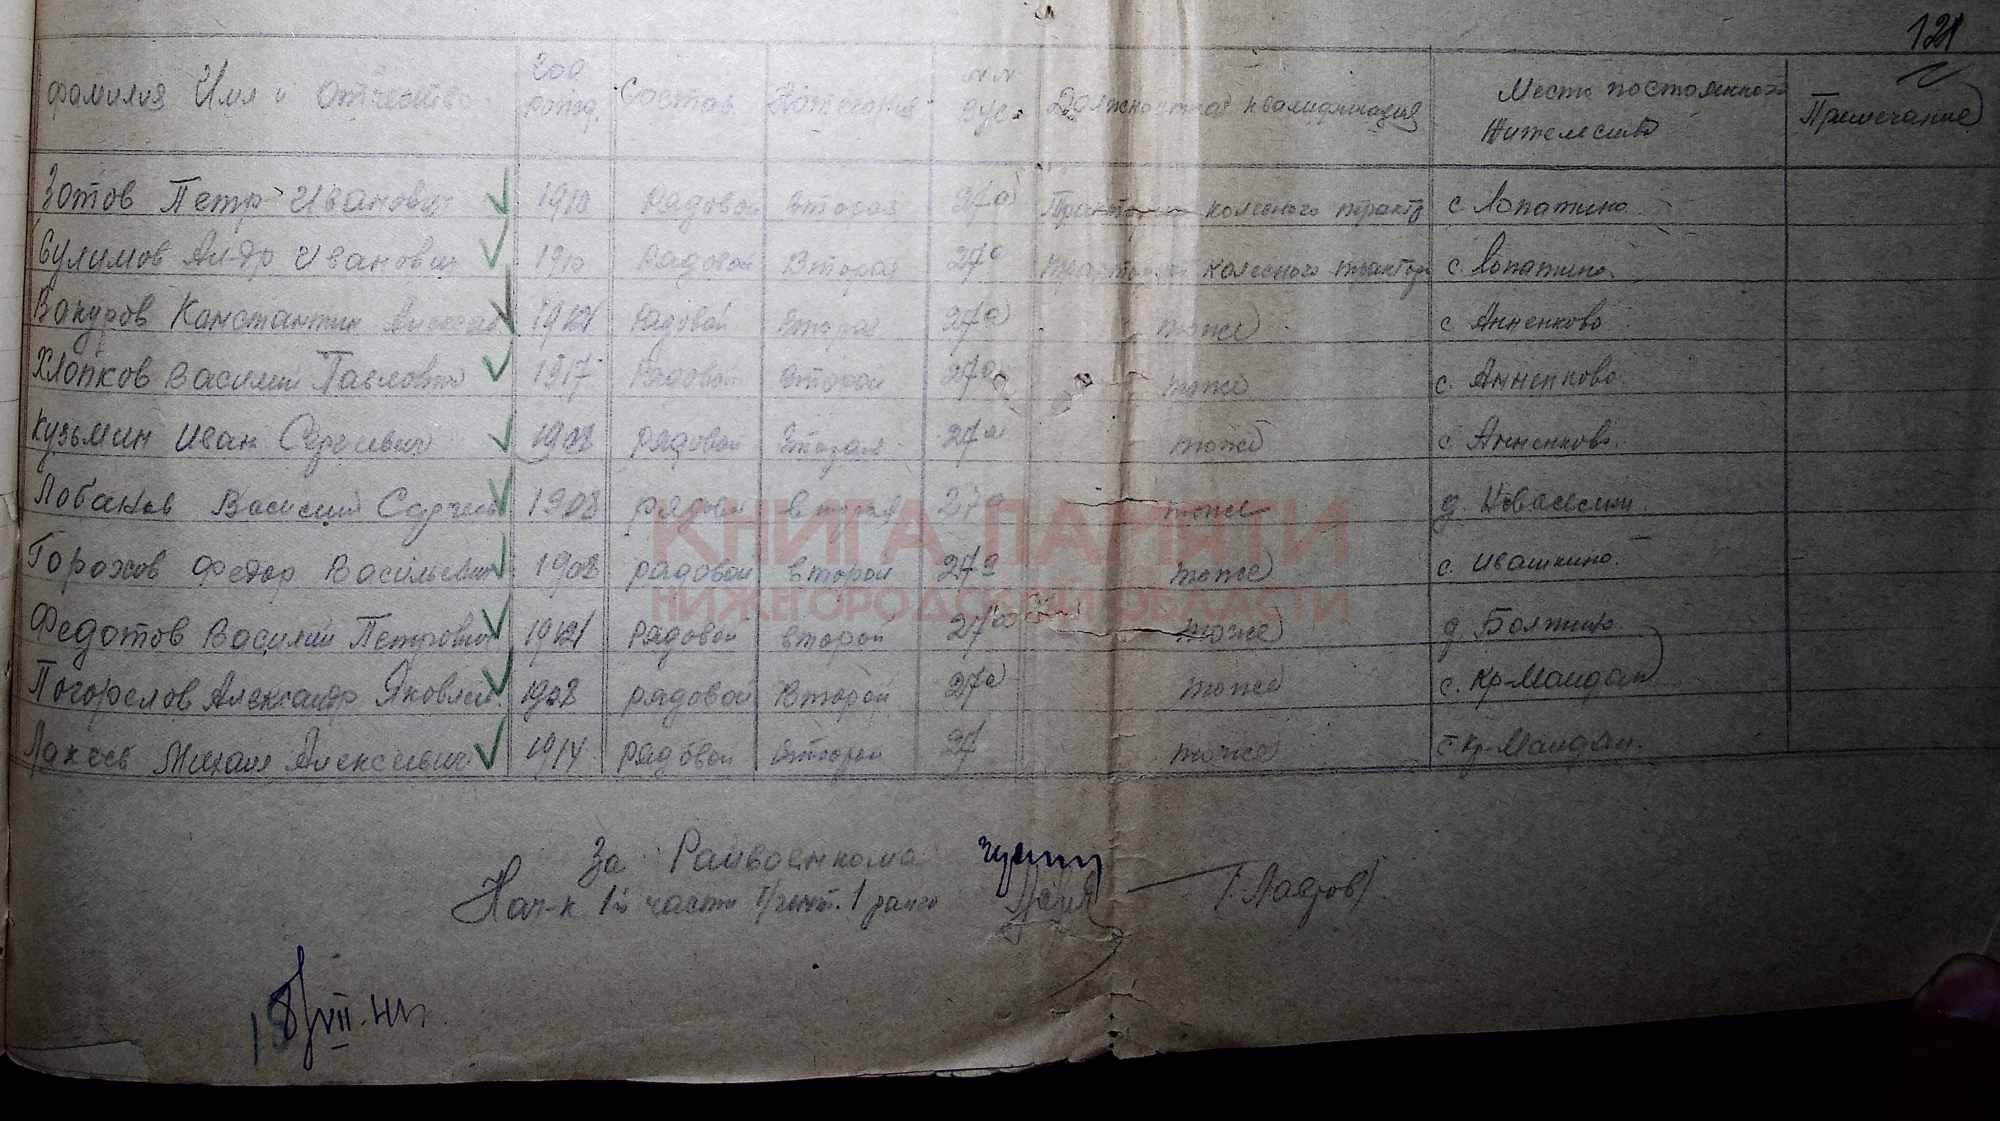 121
Фамилия Имя и Отчество год рожд. Состав Категория №№ вус. Должностная квалификация Место постоянного жительства Примечание
Зотов Петр Иванович 1910 Рядовой Вторая 27а колесного тракт с. Лопатино
Сулимов Ал-др Иванович 1910 Рядовой Вторая 27а тракторист колесного трактор с. Лопатино
Вакуров Константин 1921 Рядовой Вторая 27а тоже с Анненково
Хлопков Василий Павлович 1917 Рядовой второй 27а тоже с. Анненково
Кузьмин Иван Сергеевич 1908 рядовой Вторая 27а тоже с. Анненково
Лобанов Василий Сергеев 1908 рядовой вторая 27а тоже д.
Горохов Федор Васильевич 1908 рядовой второй 27а тоже с. Ивашкино
Федотов Василий Петрович 1921 рядовой второй 27а тоже д. Болтино
Погорелов Александр Яковлев. 1908 рядовой Второй 27а тоже с. Кр-Майдан
Лакеев Михаил Алексеевич 1914 рядовой второй 27 тоже с. Кр-Майдан.
КНИГА ПАМЯТИ
НИЖЕГОРОДСКОЙ ОБЛАСТИ
За Райвоенкома
Нач-к 1й части т/инт. 1 ранга /Лавров/
18/VII.41г.